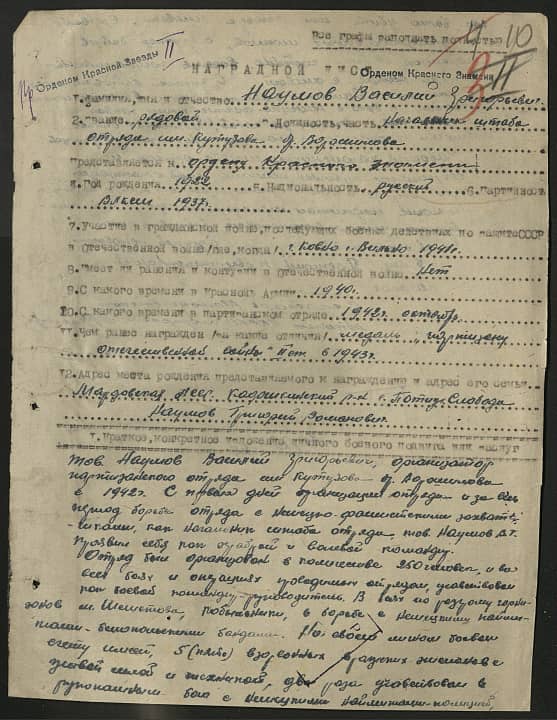 все графы заполнять полностью
10
Орденом Красной Звезды II
НАГРАДНОЙ ЛИСТ
Орденом Красного Знамени
1. Фамилия, имя и отчество Наумов Василий Григорьевич
2. Звание рядовой 3. Должность, часть Начальник штаба
отряда им. Кутузова б. Ворошилова
представляется к ордену Красного знамени
4. Год рождения 1922 5. Национальность русский 6. Партийность
ВЛКСМ 1937г.
7. Участие в гражданской войне, последующих боевых действиях по защите СССР
в Отечественной войне /где, когда/ г. Ковно г. Вильно 1941г.
8. Имеет ли ранения и контузии в Отечественной войне Нет
9. С какого времени в Красной Армии 1940г.
10. С какого времени в партизанском отряде 1942г. октябрь
11. Чем ранее награжден /за какие отличия/ медаль "партизану
отечественной войны" II ст. в 1943г.
12. Адрес места рождения представляемого к награждению и адрес его семьи
Мордовская АССР Кадошкинский р-н с. Потиж-Слобода
Наумов Григорий Романович
1. Краткое, конкретное изложение личного боевого подвига или заслуг
Тов. Наумов Василий Григорьевич, организатор
партизанского отряда им Кутузова б. Ворошилова
с 1942г. С первых дней организации отряда и за весь
период борьбы отряда с немецко-фашистскими захватчи-
ками, как начальник штаба отряда, тов Наумов В.Г.
проявил себя как храбрый и волевой командир.
Отряд был организован в количестве 250 человек, и во
всех боях и операциях проводимых отрядом, участвовал
как боевой командир-руководитель. В боях по разгрому гарни-
зонов м. Шеметова, в борьбе с немецкими наймит-
ами-белопольскими бандами. На своём личном боевом
счету имеет, 5 (пять) взорванных вражеских эшелонов с
живой силой и техникой, два раза участвовал в
рукопашном бою с немецкими наймитами-полицией,